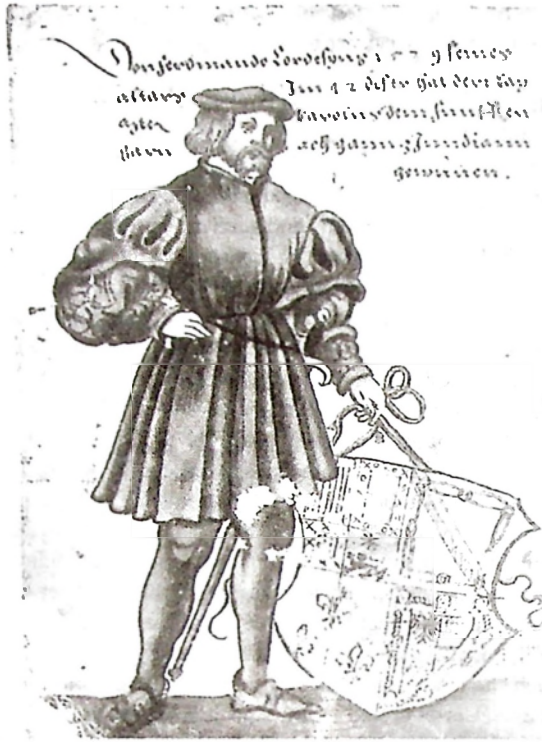 Don ferdinando Cordesyus 1529 seines
alters Im 42 diser hat dem kay
Karolus dem funfften
gannz Jnndiann
gewunnen.